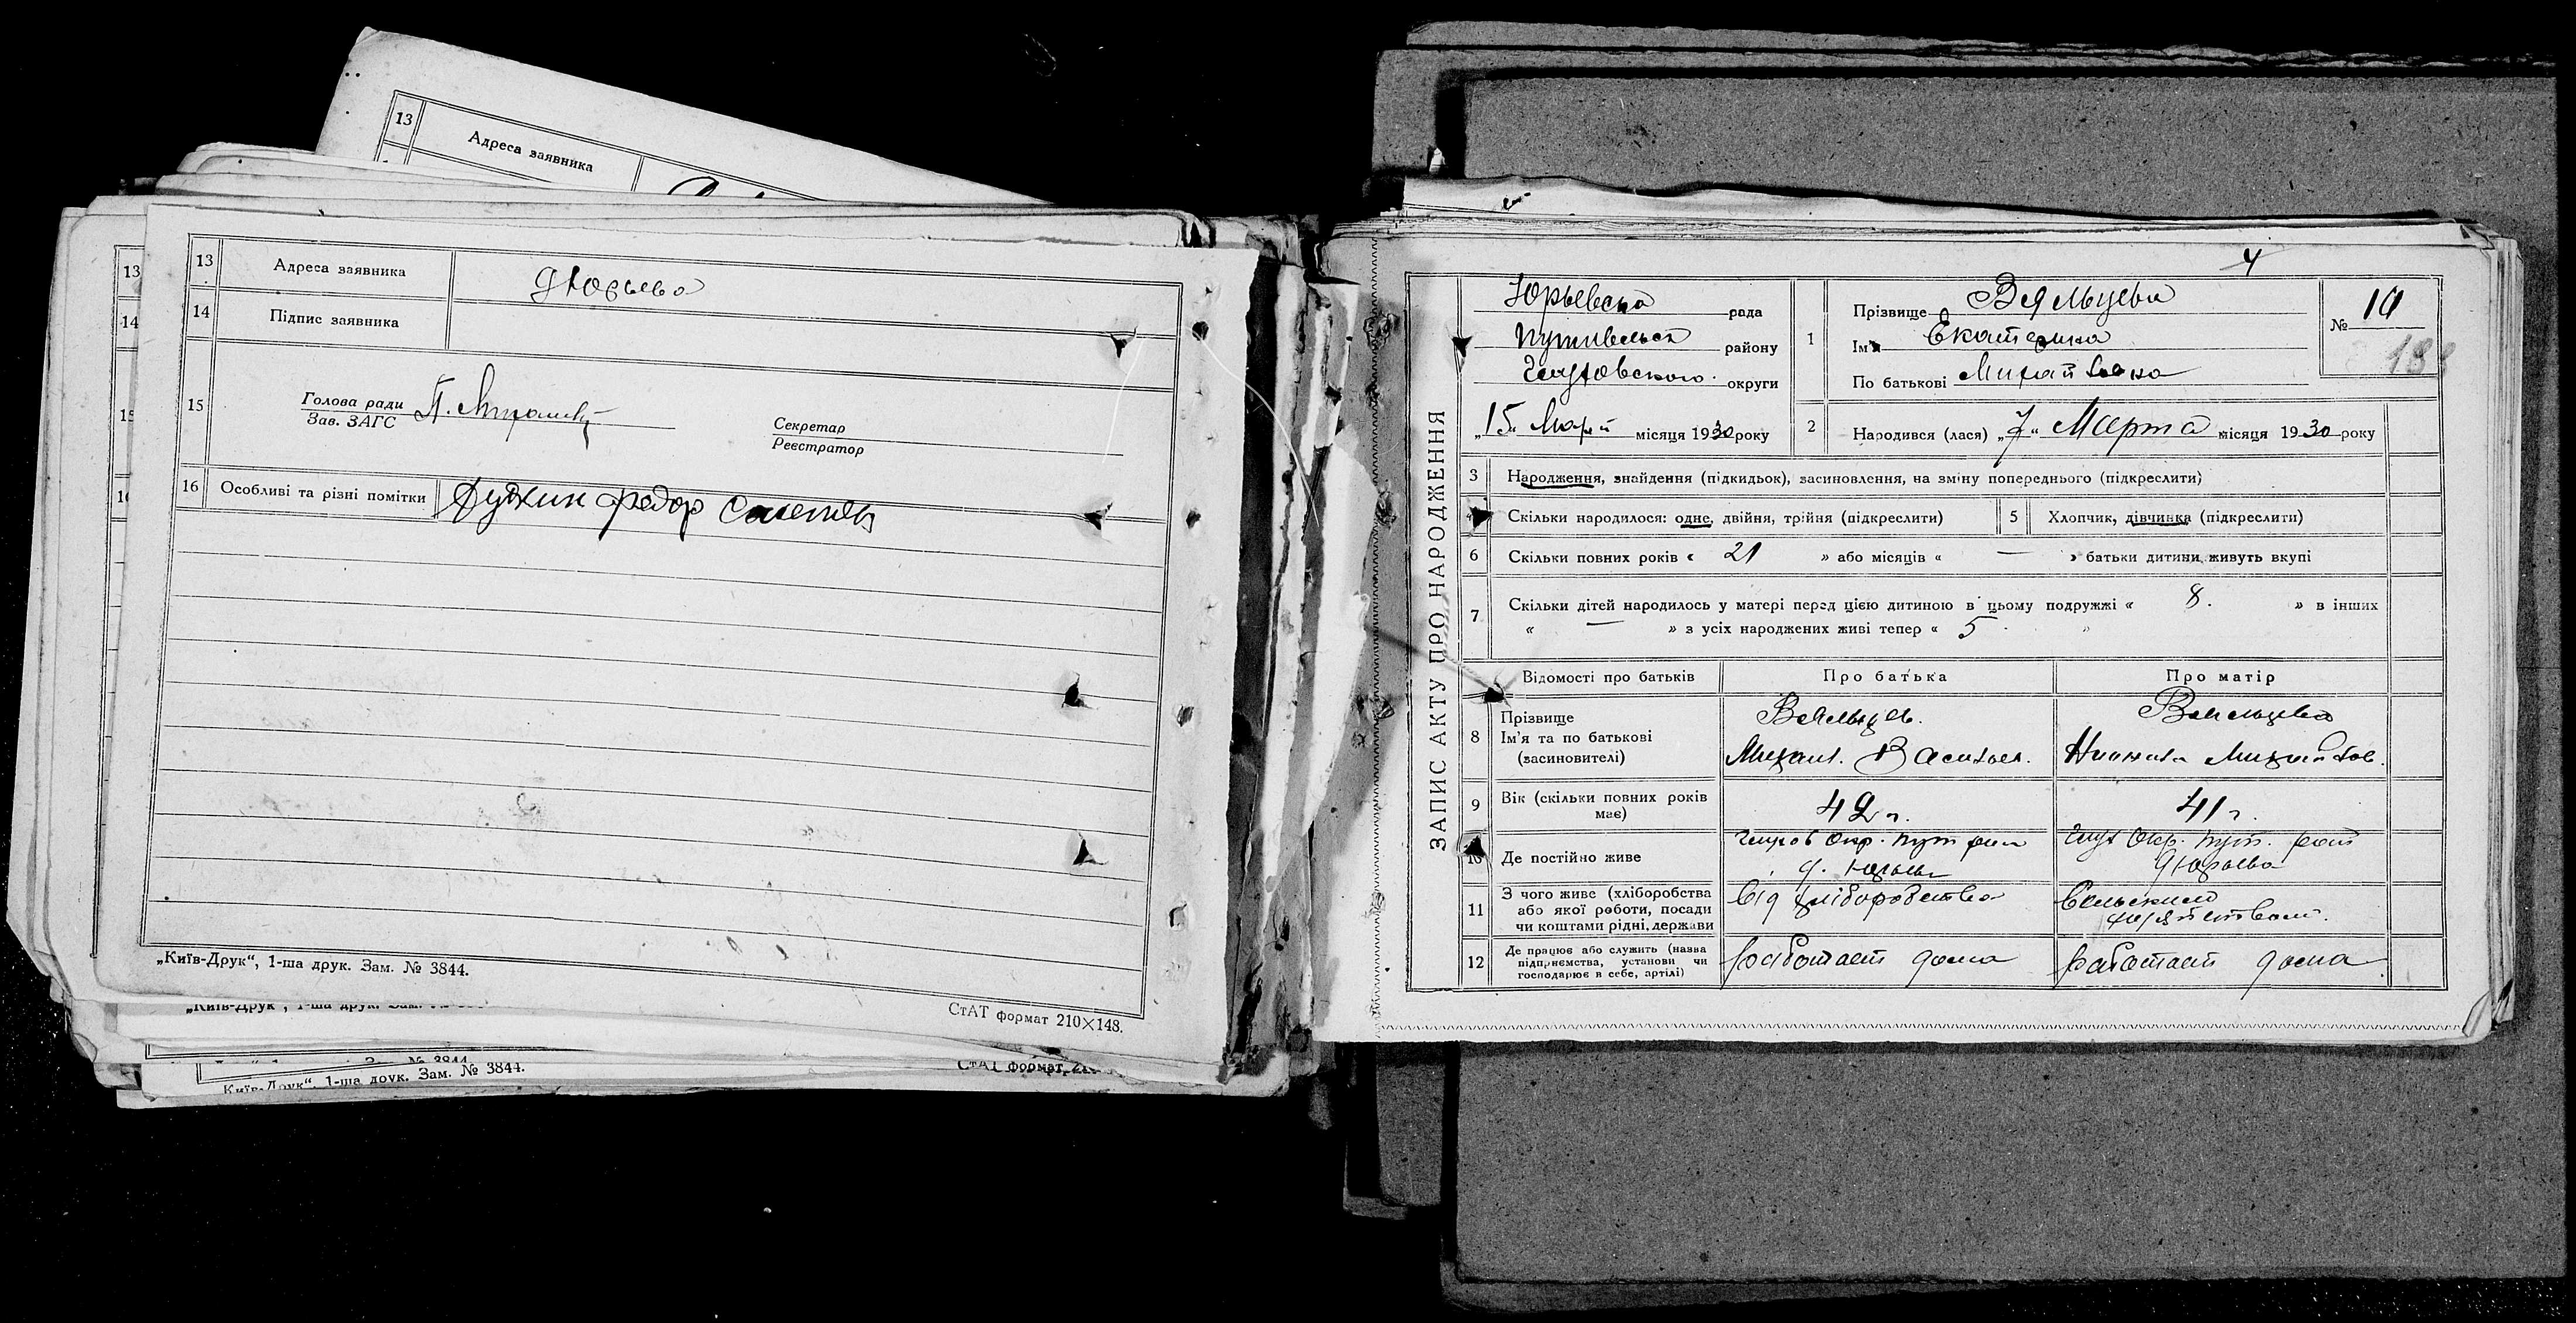 13 Адреса заявника
13
14
15
16
13 Адреса заявника д Юрьево
14 Підпис заявника
15 Голова ради
Зав. ЗАГС П.
Секретар
Реєстратор
16 Особливі та різні помітки Федор
„Київ-Друк“, 1-ша друк. Зам. № 3844.
СтАТ формат 210×148.
„Київ-Друк“, 1-ша друк. Зам.
№ 3844
Київ-Друк“, 1-ша друк. Зам. № 3844.
СтАТ формат
4
ЗАПИС АКТУ ПРО НАРОДЖЕННЯ
Юрьевска рада
Путивельск району
округи
„15“ місяця 1930 року
1 Прізвище Вяльцева
Ім'я Екатерина
По батькові Михайловна
№ 10
2 Народився (лася) „7“ Марта місяця 1930 року
3 Народження, знайдення (підкидьок), засиновлення, на зміну попереднього (підкреслити)
4 Скільки народилося: одне, двійня, трійня (підкреслити)
5 Хлопчик, дівчинка (підкреслити)
6 Скільки повних років « 21 » або місяців « — » батьки дитини живуть вкупі
7 Скільки дітей народилось у матері перед цією дитиною в цьому подружжі « 8. » в інших
« — » з усіх народжених живі тепер « 5 »
Відомості про батьків Про батька Про матір
8 Прізвище Вяльцев. Вяльцева
Ім'я та по батькові Михаил. Васильев. Михайлов.
(засновителі)
9 Вік (скільки повних років має) 42 г. 41 г.
10 Де постійно живе Окр. Пут Окр. Пут. рай
д. Юрьев д Юрьево
11 З чого живе (хліборобства або якої роботи, посади чи коштами рідні, держави від хліборобства Сельским
12 Де працює або служить (назва підприємства, установи чи господарює в себе, артілі) работает дома работает дома